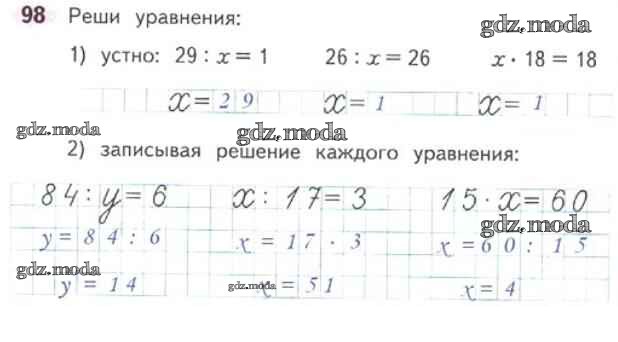 98 Реши уравнения:
gdz.moda
1) устно: 29 : x = 1 26 : x = 26 x · 18 = 18
x = 29 x = 1 x = 1
gdz.moda gdz.moda
2) записывая решение каждого уравнения:
84 : y = 6 x : 17 = 3 15 · x = 60
gdz.moda
y = 84 : 6 x = 17 · 3 x = 60 : 15
gdz.moda
y = 14 x = 51 x = 4
gdz.moda